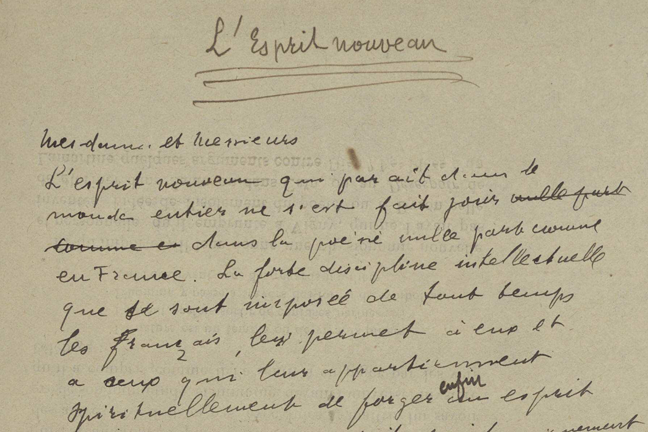 L'Esprit nouveau
Mesdames et Messieurs
L'esprit nouveau qui paraît dans le
monde entier ne s'est fait jour nulle part
comme en dans la poésie nulle part comme
en France. La forte discipline intellectuelle
que se sont imposée de tout temps
les français, leur permet à eux et
a ceux qui leur appartiennent
enfin
spirituellement de forger un esprit